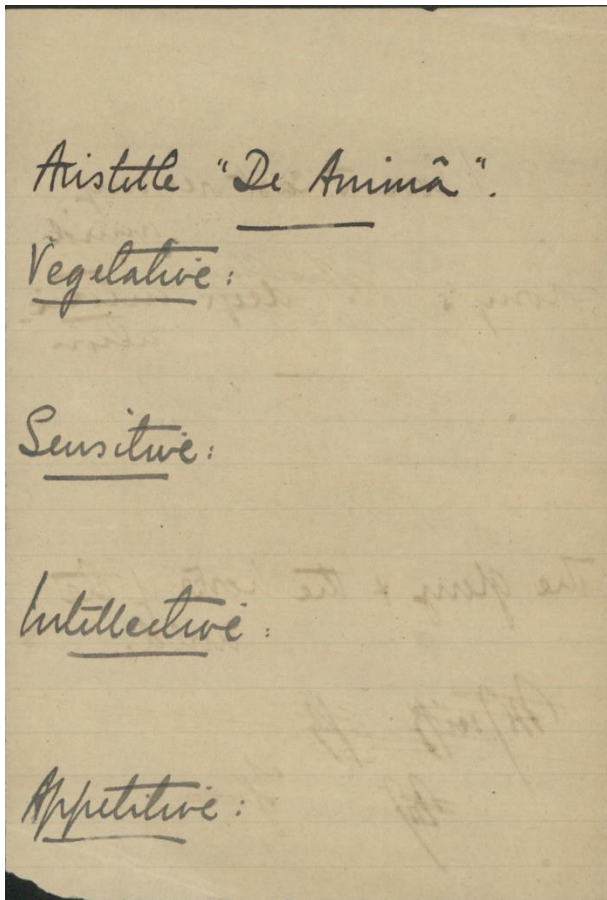 Aristotle "De Animâ".
Vegetative:
Sensitive:
Intellective:
Appetitive: